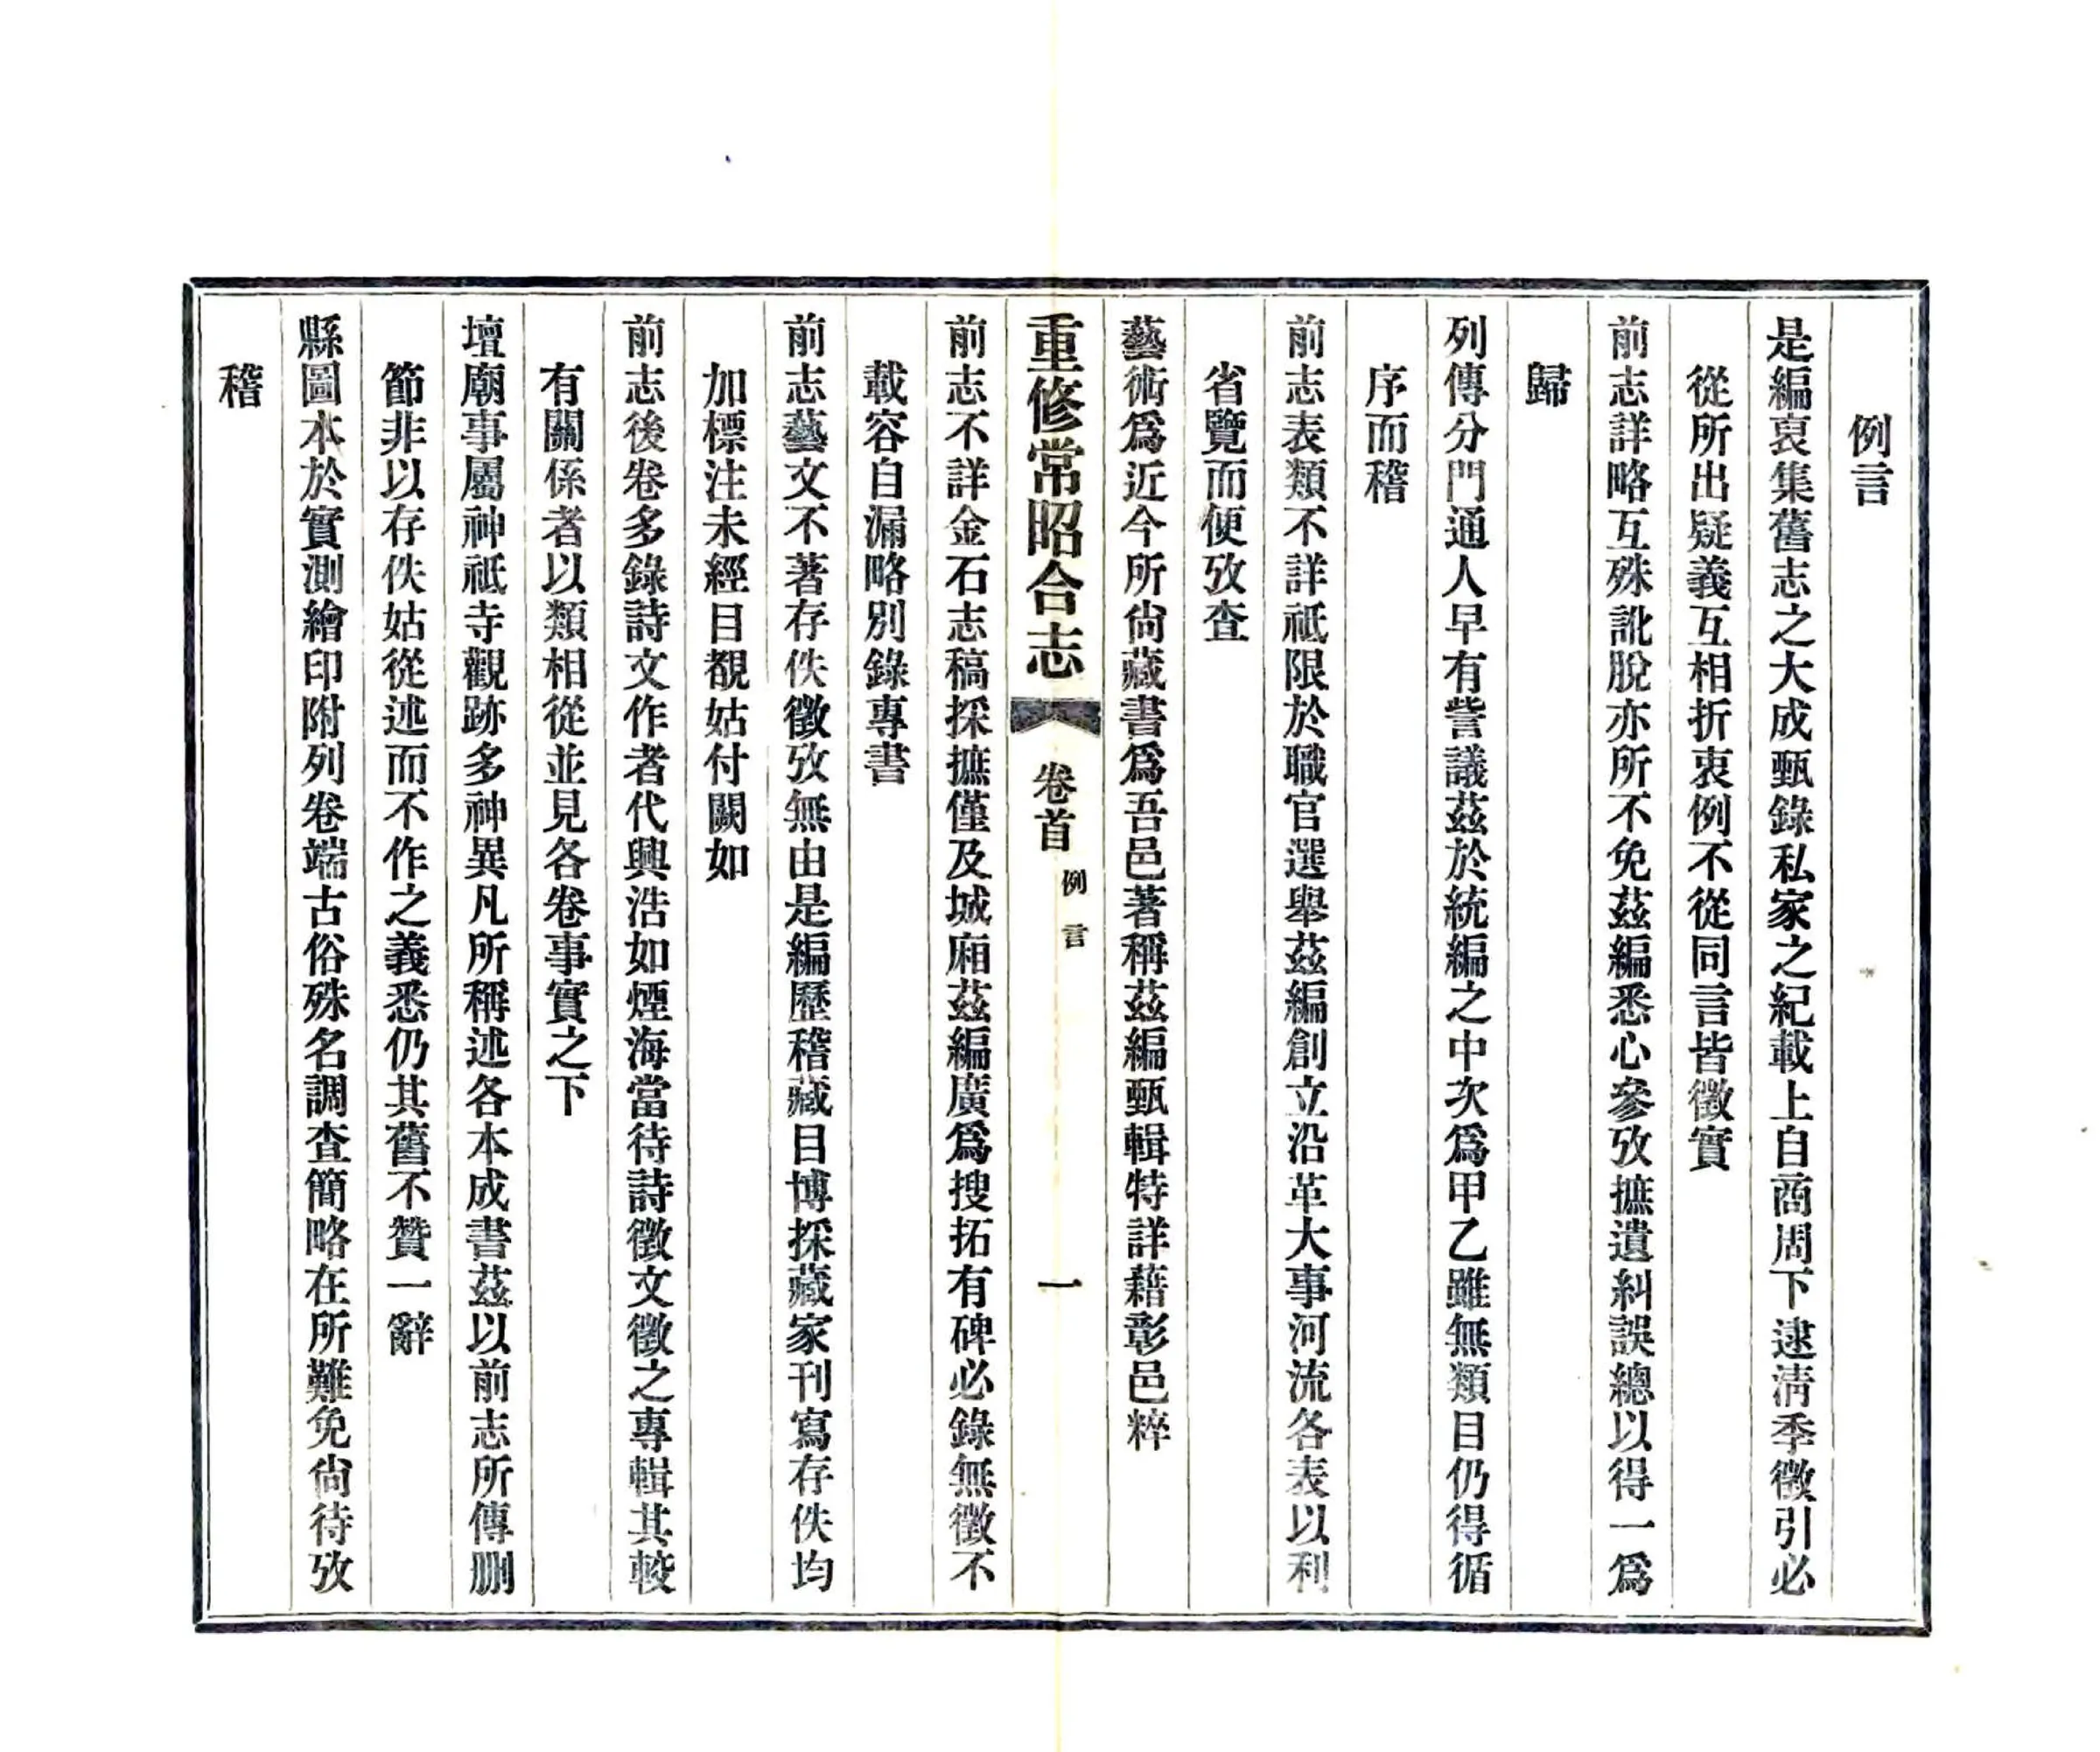 例言
是編裒集舊志之大成甄錄私家之紀載上自商周下逮淸季徵引必
從所出疑義互相折衷例不從同言皆徵實
前志詳略互殊訛脫亦所不免茲編悉心參攷摭遺糾誤總以得一爲
歸
列傳分門通人早有訾議茲於統編之中次爲甲乙雖無類目仍得循
序而稽
前志表類不詳祇限於職官選舉茲編創立沿革大事河流各表以利
省覽而便攷査
藝術爲近今所尙藏書爲吾邑著稱茲編甄輯特詳藉彰邑粹
重修常昭合志 卷首 例言 一
前志不詳金石志稿採摭僅及城廂茲編廣爲搜拓有碑必錄無徵不
載容自漏略別錄專書
前志藝文不著存佚徵攷無由是編歷稽藏目博採藏家刊寫存佚均
加標注未經目覩姑付闕如
前志後卷多錄詩文作者代興浩如煙海當待詩徵文徵之專輯其較
有關係者以類相從並見各卷事實之下
壇廟事屬神祇寺觀跡多神異凡所稱述各本成書茲以前志所傳刪
節非以存佚姑從述而不作之義悉仍其舊不贊一辭
縣圖本於實測繪印附列卷端古俗殊名調查簡略在所難免尙待攷
稽